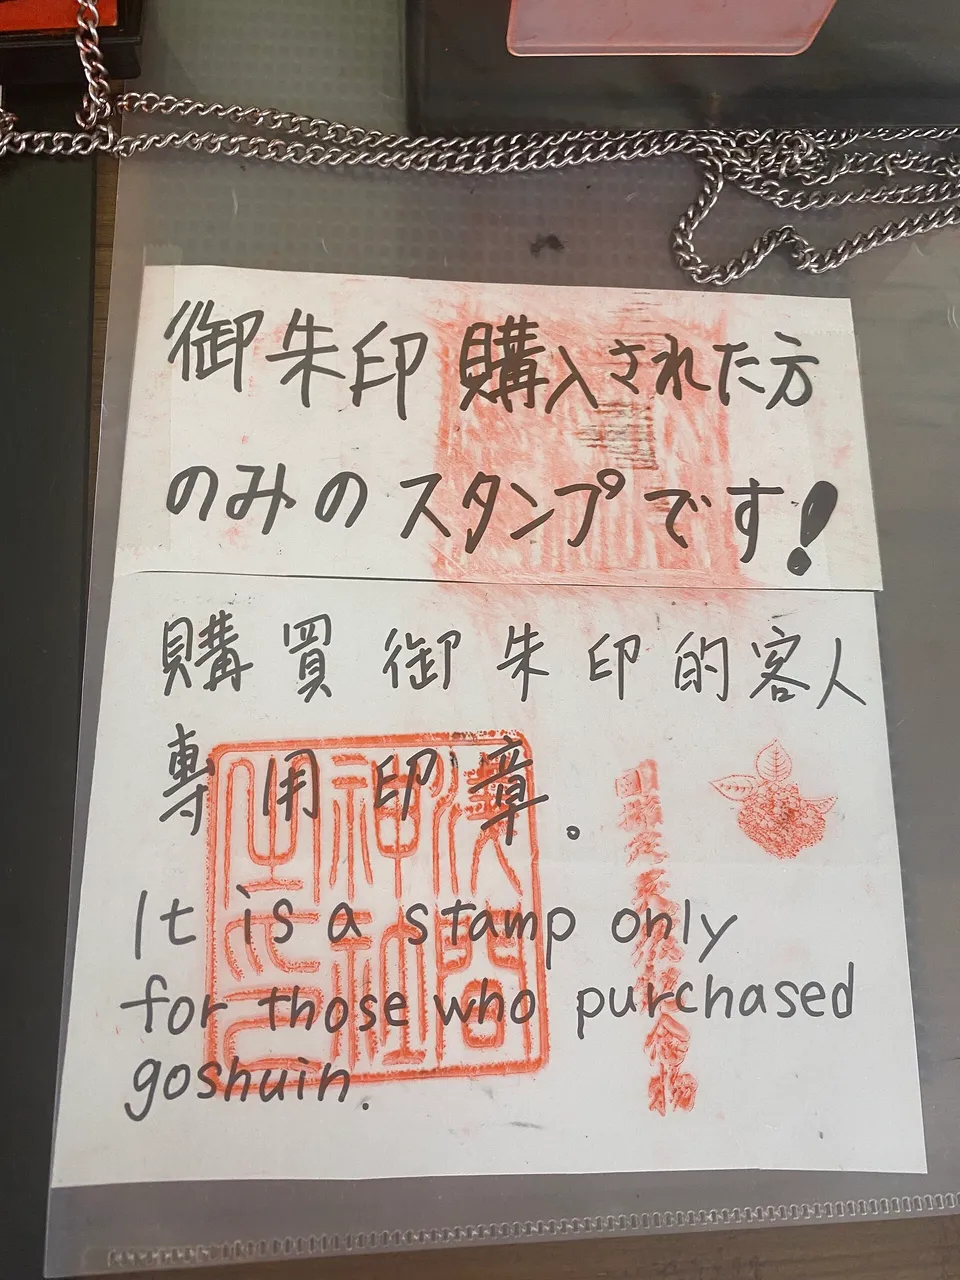 御朱印購入された方
のみのスタンプです!
購買御朱印的客人
專用印章。
It is a stamp only
for those who purchased
goshuin.
浅間
神社
之印